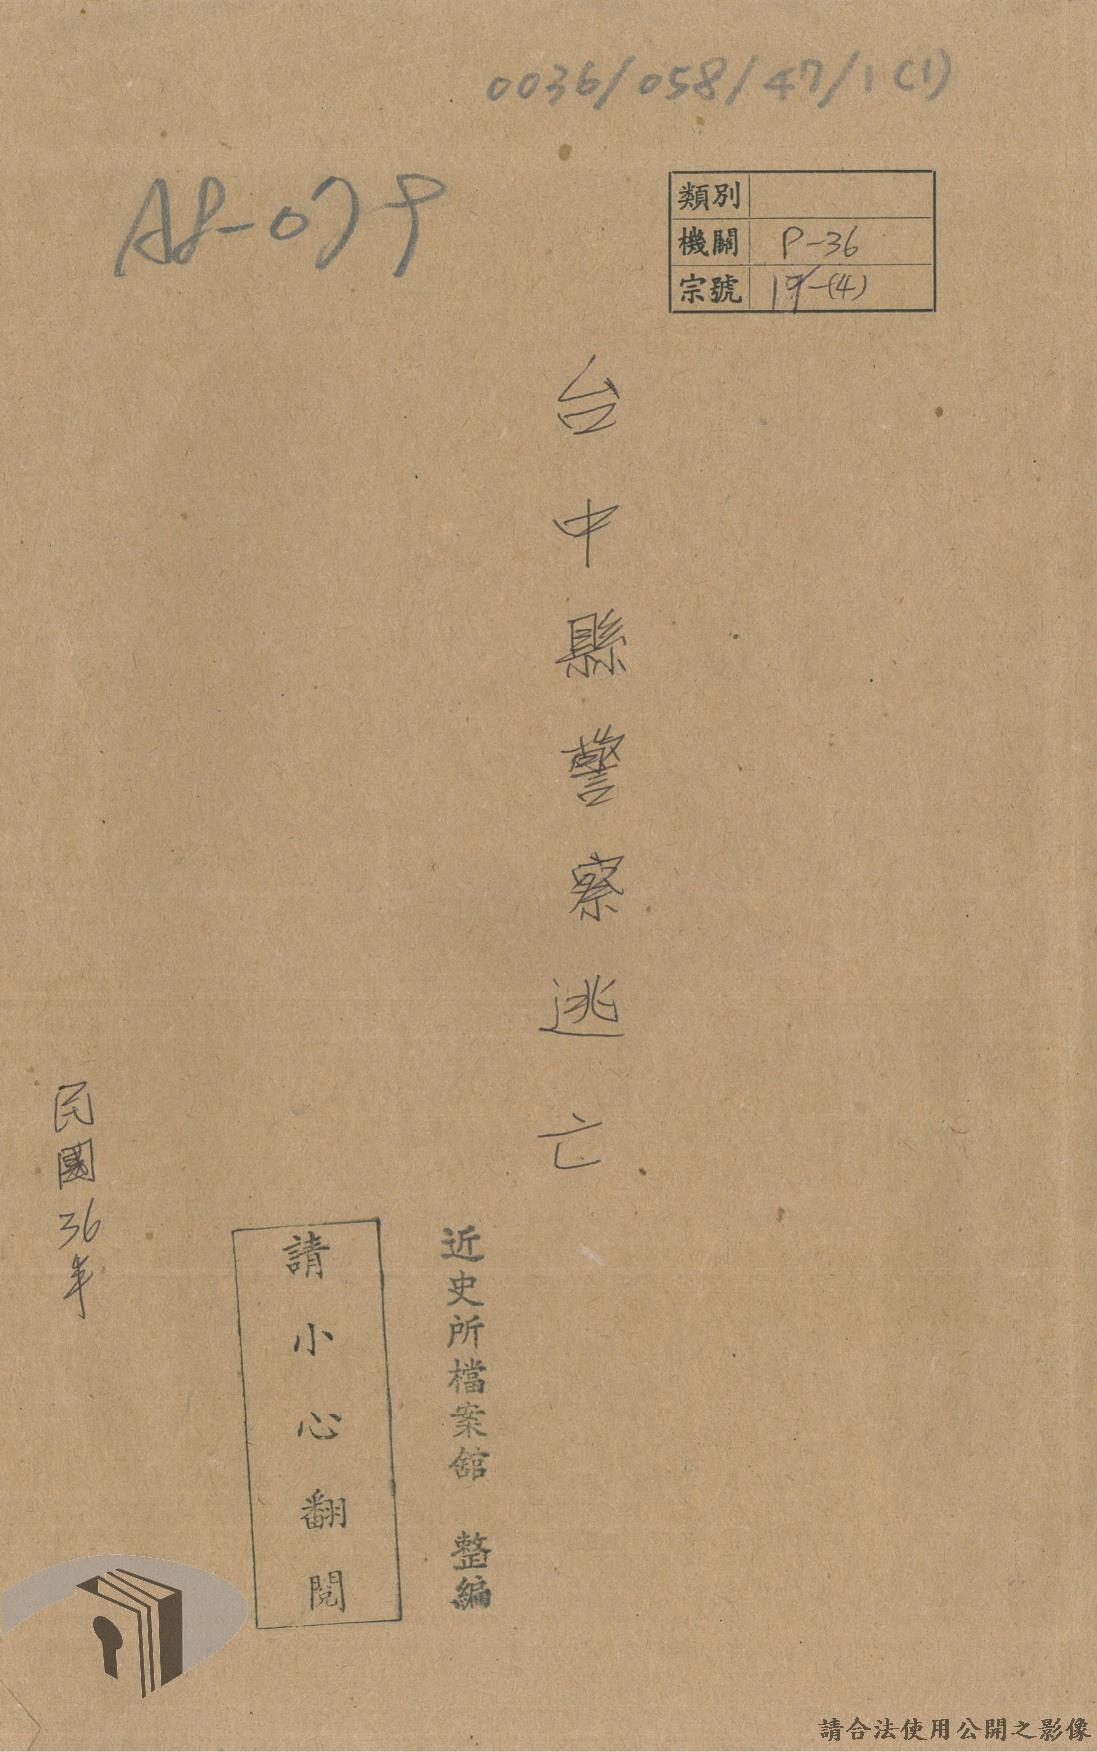 0036/058/47/1(1)
類別
機關 P-36
宗號 19-(4)
台中縣警察逃亡
近史所檔案舘 整編
請小心翻閱
民國36年
請合法使用公開之影像